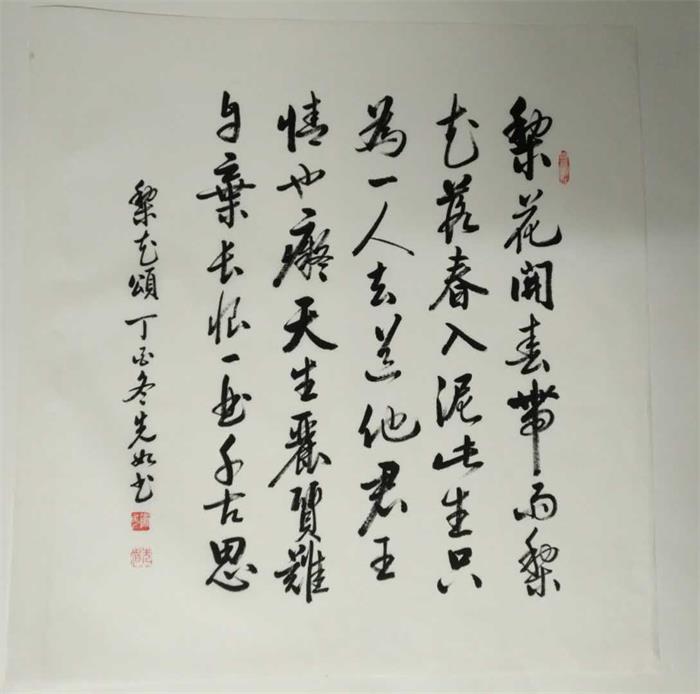 梨花開春帶雨梨
花落春入泥此生只
為一人去道他君王
情也癡天生麗質難
自棄長恨一曲千古思
梨花頌丁酉冬先如书